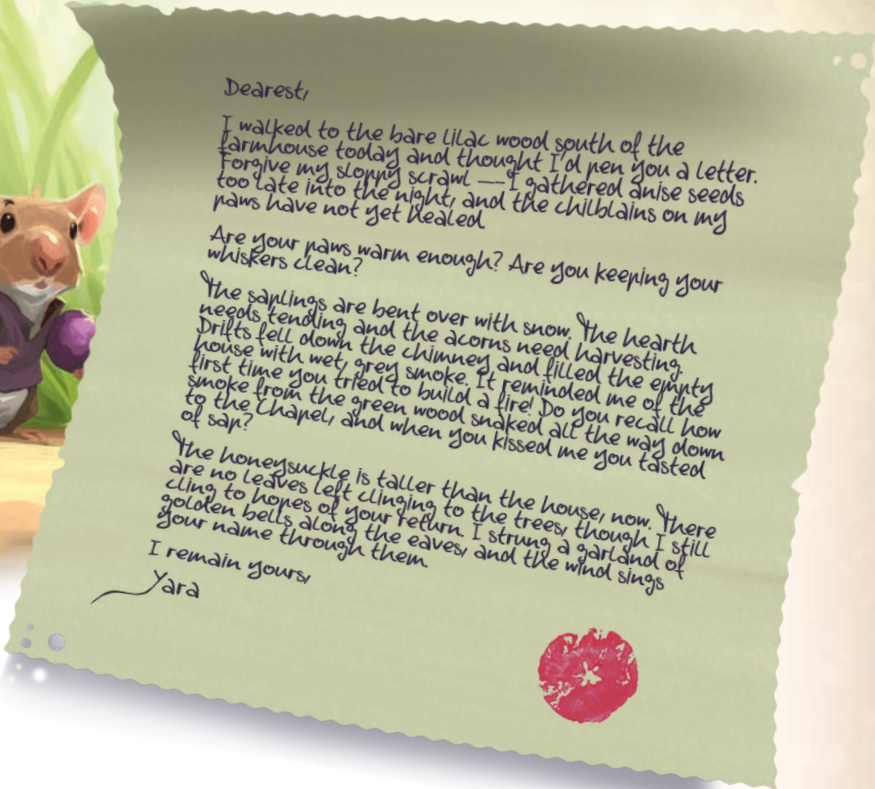 Dearest,
I walked to the bare lilac wood south of the
farmhouse today and thought I'd pen you a letter.
Forgive my sloppy scrawl — I gathered anise seeds
too late into the night, and the chilblains on my
paws have not yet healed
Are your paws warm enough? Are you keeping your
whiskers clean?
The saplings are bent over with snow. The hearth
needs tending and the acorns need harvesting.
Drifts fell down the chimney and filled the empty
house with wet, grey smoke. It reminded me of the
first time you tried to build a fire! Do you recall how
smoke from the green wood snaked all the way down
to the Chapel, and when you kissed me you tasted
of sap?
The honeysuckle is taller than the house, now. There
are no leaves left clinging to the trees, though I still
cling to hopes of your return. I strung a garland of
golden bells along the eaves, and the wind sings
your name through them.
I remain yours,
Yara